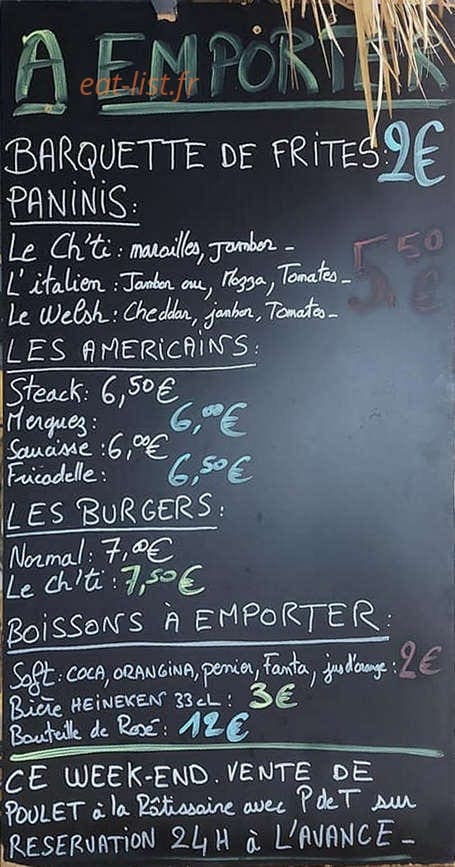 A EMPORTER
eat-list.fr
BARQUETTE DE FRITES: 2€
PANINIS:
Le Ch'ti: maroilles, Jambon -
L'italien: Jambon cru, Mozza, Tomates -
5,50 €
Le Welsh: Cheddar, jambon, Tomates -
LES AMERICAINS:
Steack: 6,50€
Merguez: 6,00€
Saucisse: 6,00€
Fricadelle: 6,50€
LES BURGERS:
Normal: 7,00€
Le Ch'ti: 7,50€
BOISSONS À EMPORTER:
Soft: COCA, ORANGINA, perrier, Fanta, jus d'orange: 2€
Bière HEINEKEN 33cL: 3€
Bouteille de Rosé: 12€
CE WEEK-END. VENTE DE
POULET à la Rôtissoire avec P de T sur
RESERVATION 24H à L'AVANCE -